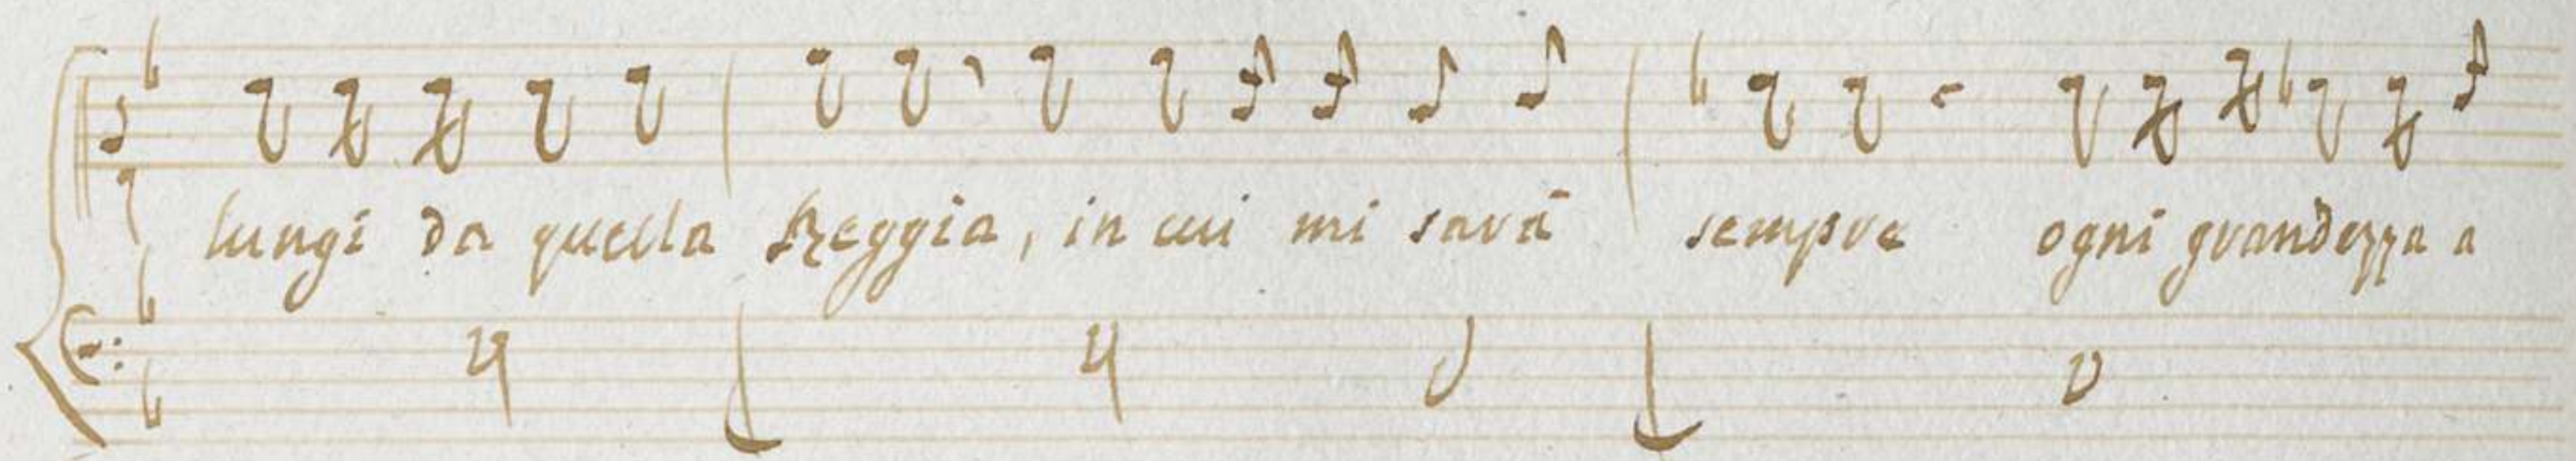 lungi da quella Reggia, in cui mi sarà sempre ogni grandezza a